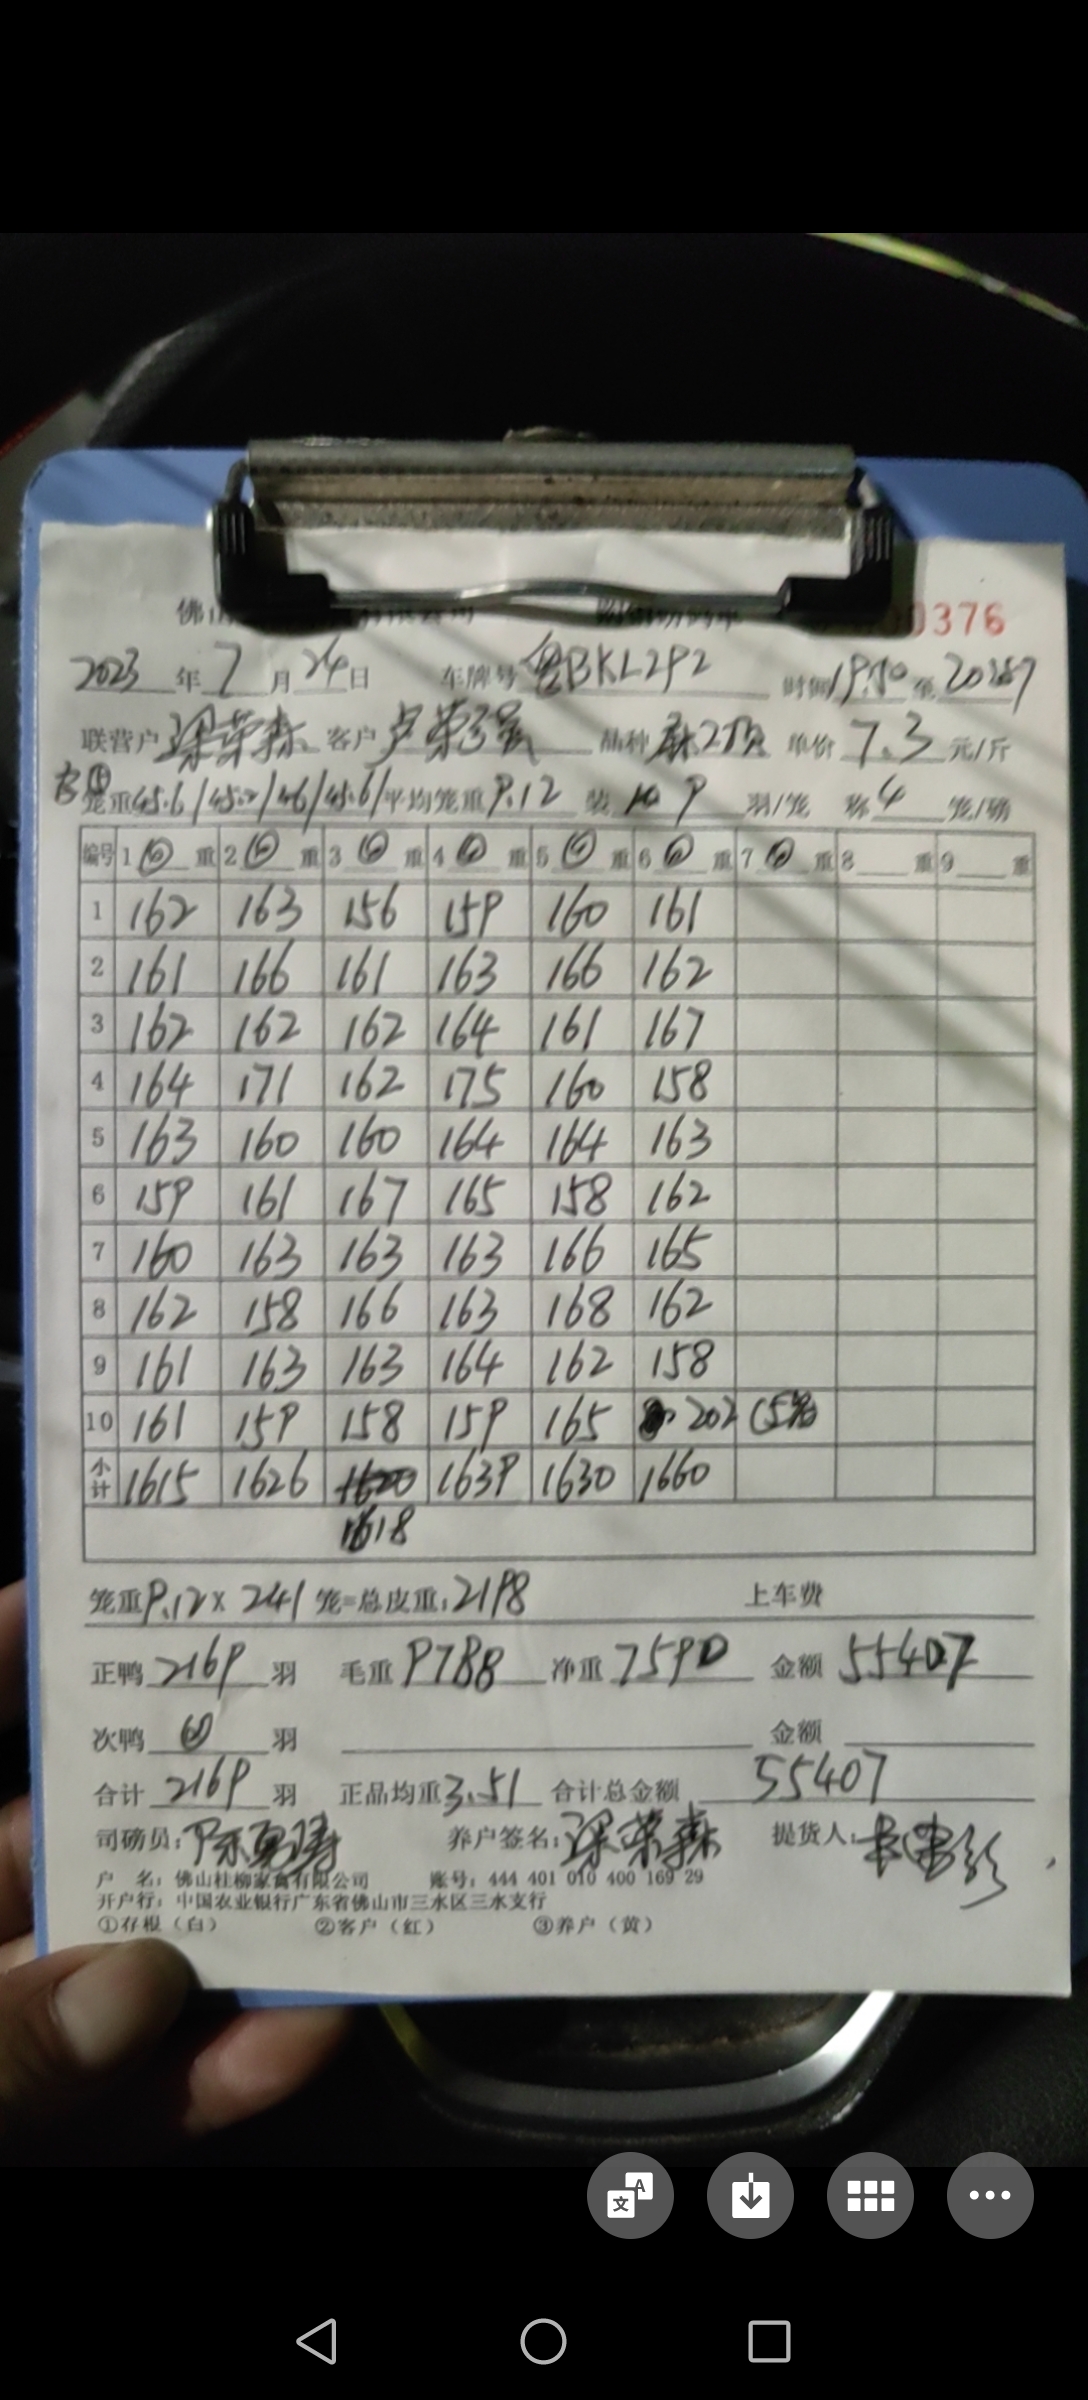 佛山 有限公司 0376
2023 年 7 月 24 日 车牌号 粤BKL292 时间 19:10 至 20:
联营户 梁荣森 客户 卢荣强 品种 麻2顶 单价 7.3 元/斤
笼重 45.6/45.2/46/45.6/ 平均笼重 9.12 装 9 羽/笼 称 4 笼/磅
编号 1 重 2 重 3 重 4 重 5 重 6 重 7 重 8 重 9 重
1 162 163 156 159 160 161
2 161 166 161 163 166 162
3 162 162 162 164 161 167
4 164 171 162 175 160 158
5 163 160 160 164 164 163
6 159 161 167 165 158 162
7 160 163 163 163 166 165
8 162 158 166 163 168 162
9 161 163 163 164 162 158
10 161 159 158 159 165 202 (5笼)
小计 1615 1626 1620 1639 1630 1660
1618
笼重 9.12 x 241 笼=总皮重: 2198 上车费
正鸭 2169 羽 毛重 9788 净重 7590 金额 55407
次鸭 羽 金额
合计 2169 羽 正品均重 3.51 合计总金额 55407
司磅员: 养户签名: 梁荣森 提货人:
户 名: 佛山桂柳家禽有限公司 账号: 444 401 010 400 169 29
开户行: 中国农业银行广东省佛山市三水区三水支行
①存根（白） ②客户（红） ③养户（黄）